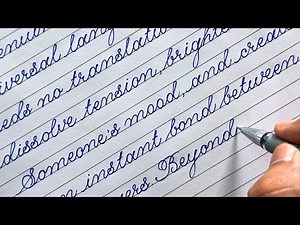 enuin
iversal lang
eds no translatio
dissolve tension, brighte
Someone's mood, and creat
n instant bond between
vers. Beyond